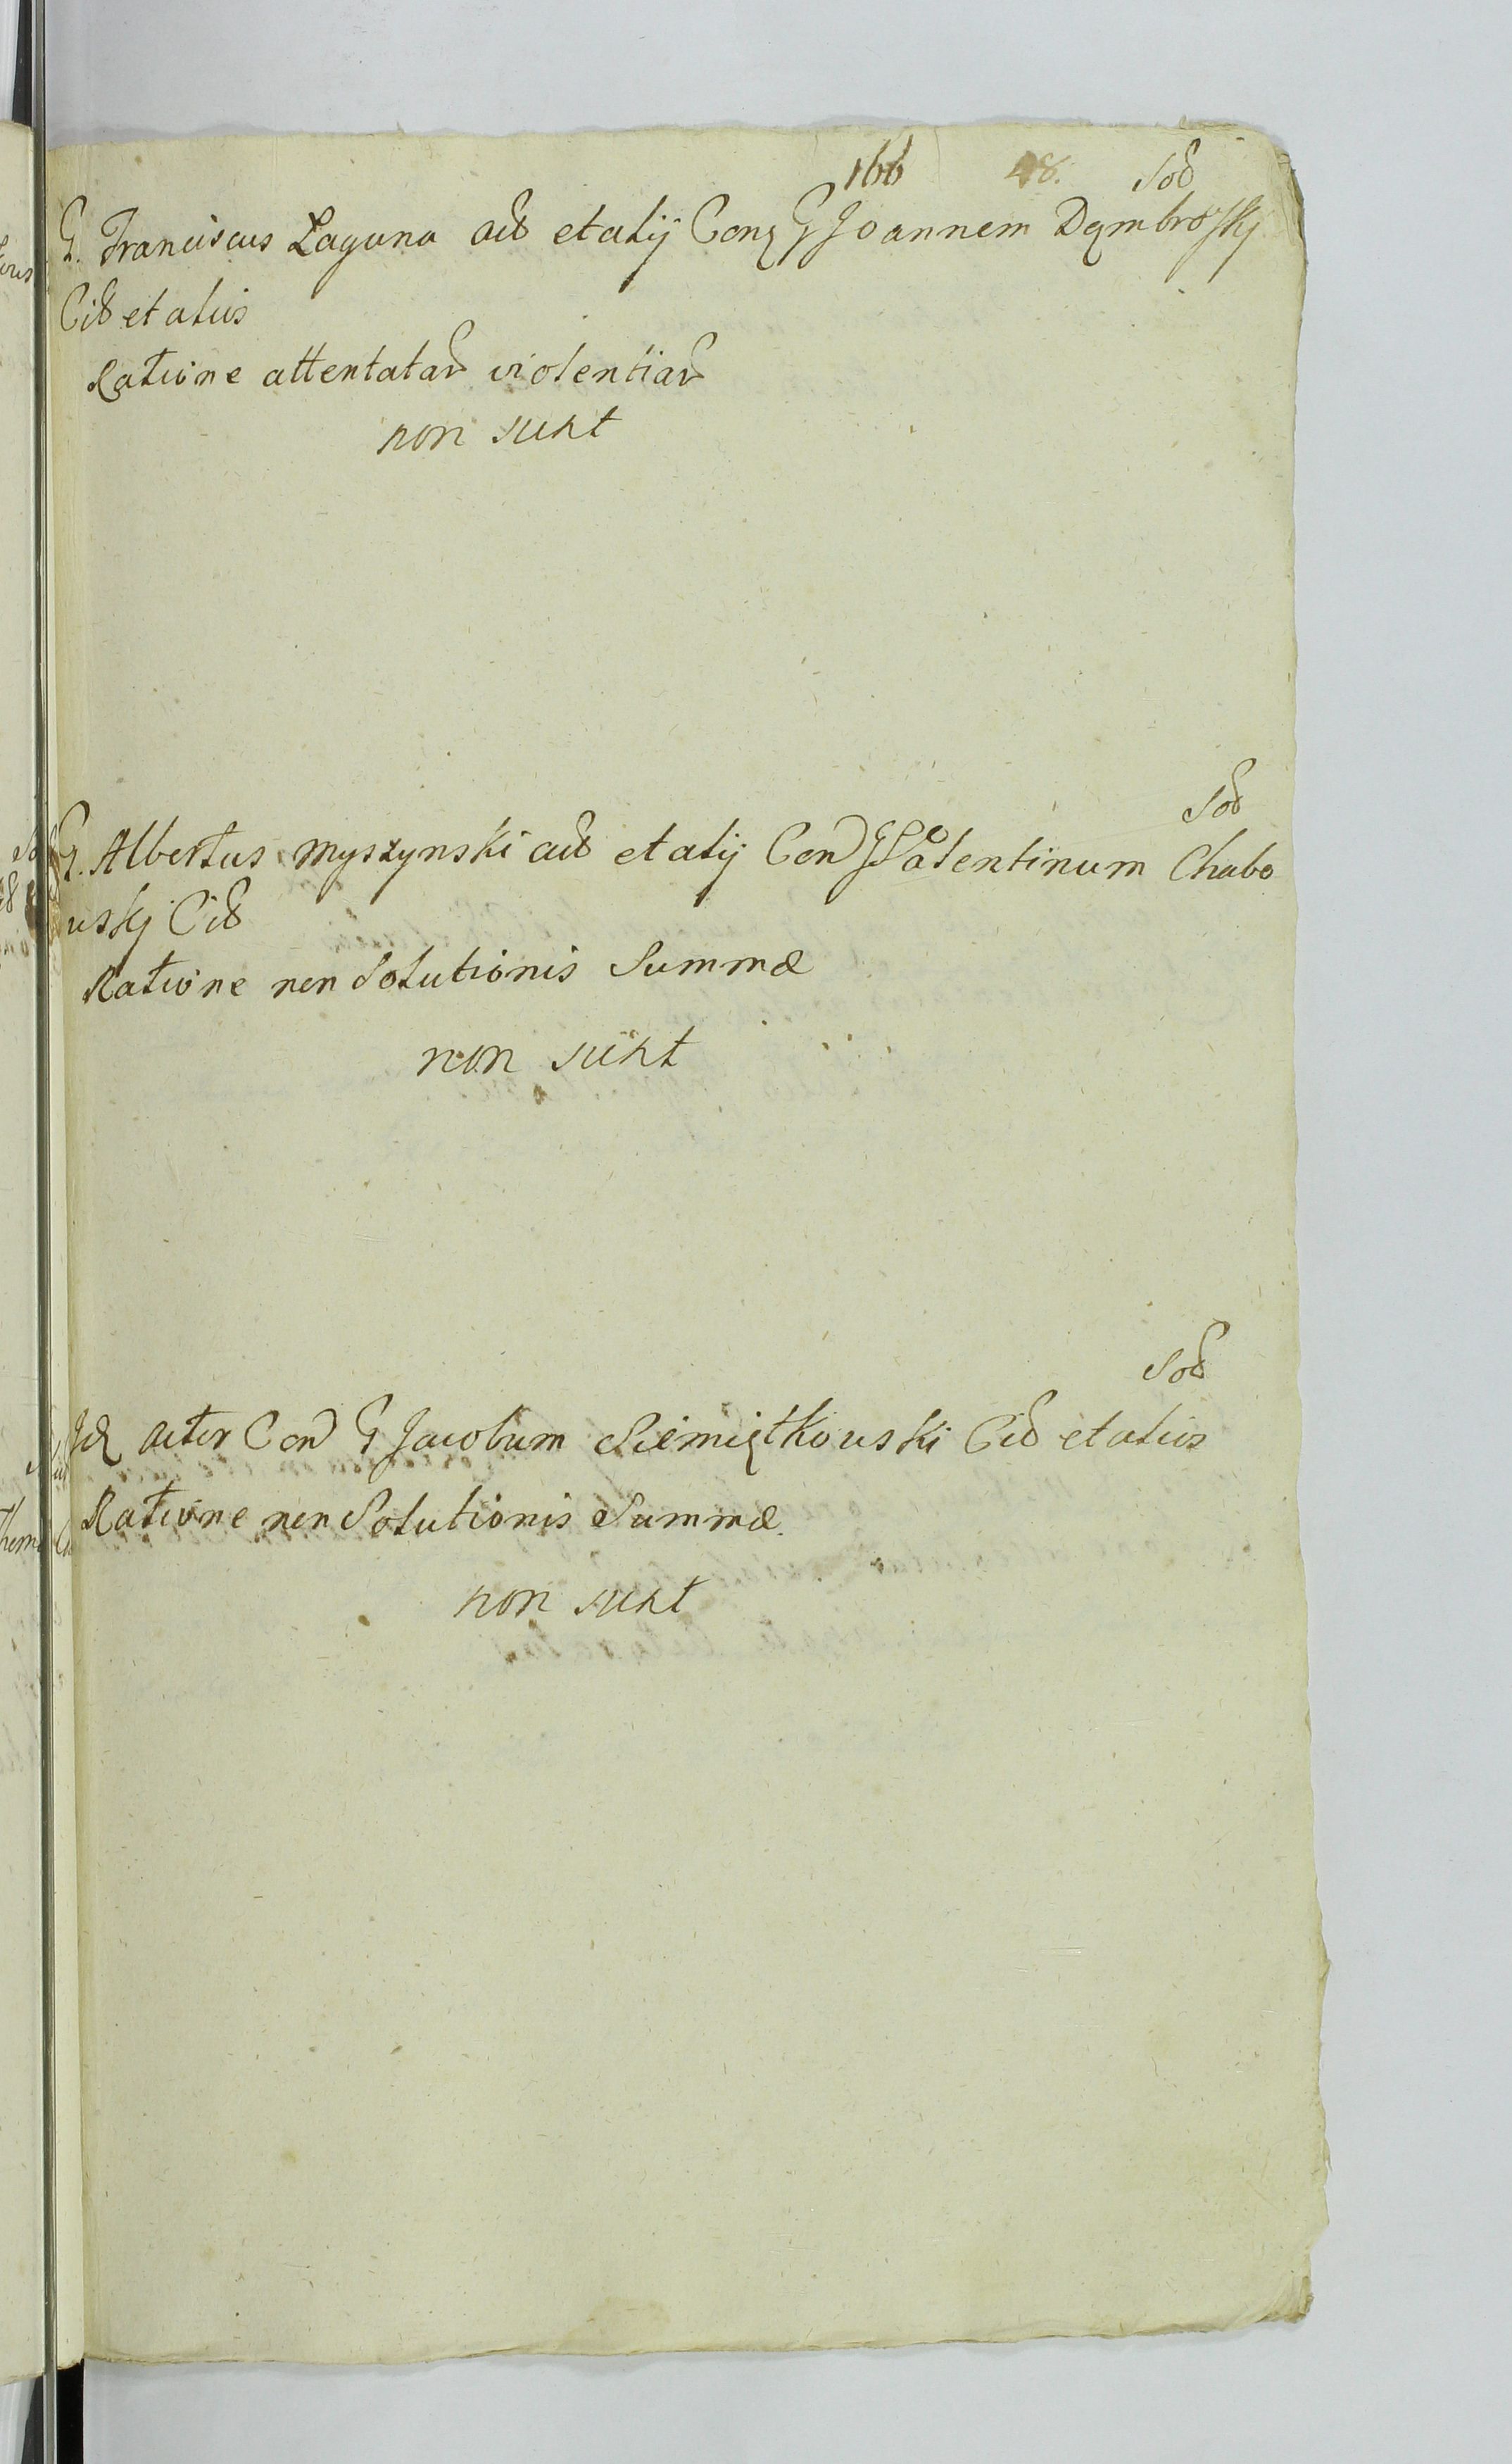 166 48. Sod
G. Franciscus Laguna act et alij Conq G Joannem Dąmbrosky
Cit et alius
Ratione attentatar violentiar
non sunt
Sod
G. Albertus Myszynski act et alij Con G Valentinum Chabo
usky Cit
Ratione non Solutionis Summæ
non sunt
Sod
Id actor Con G Jacobum Siemiątkouski Cit et alios
Ratione non Solutionis Summæ.
non sunt